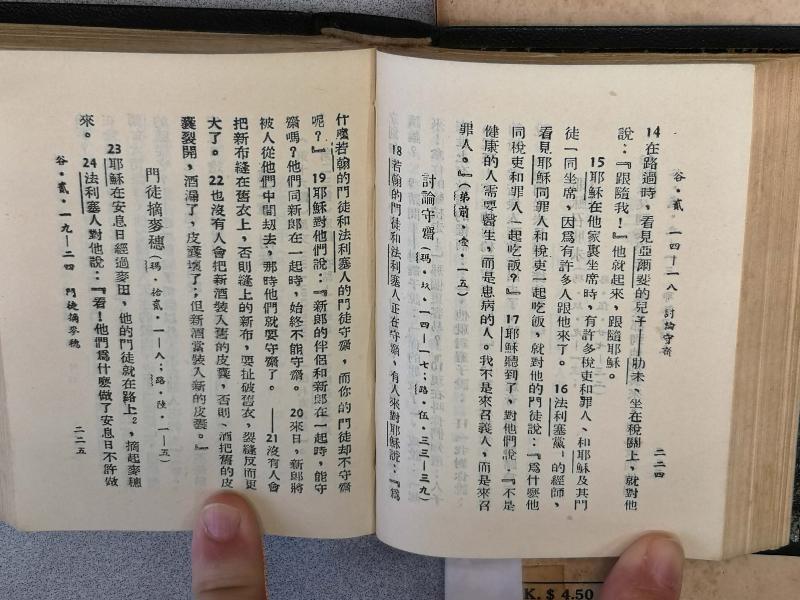 谷·貳·一四—一八 討論守齋 二二四
14 在路過時，看見亞爾斐的兒子——肋未、坐在稅關上，就對他
說：『跟隨我！』他就起來，跟隨耶穌。
15 耶穌在他家裏坐席時，有許多稅吏和罪人、和耶穌及其門
徒一同坐席，因爲有許多人跟他來了。 16 法利塞黨¹的經師、
看見耶穌同罪人和稅吏一起吃飯，就對他的門徒說：『爲什麽他
同稅吏和罪人一起吃飯？』 17 耶穌聽到了，對他們說：『不是
健康的人需要醫生，而是患病的人。我不是來召義人，而是來召
罪人。』（弟前·壹·一五）
討論守齋（瑪·玖·一四—一七；路·伍·三三—三九）
18 若翰的門徒和法利塞人正在守齋，有人來對耶穌說：『爲
什麽若翰的門徒和法利塞人的門徒守齋，而你的門徒却不守齋
呢？』 19 耶穌對他們說：『新郎的伴侶和新郎在一起時，能守
齋嗎？他們同新郎在一起時，始終不能守齋。 20 來日，新郎將
被人從他們中間刧去，那時他們就要守齋了。——21 沒有人會
把新布縫在舊衣上，否則縫上的新布，要扯破舊衣，裂縫反而更
大了。 22 也沒有人會把新酒裝入舊的皮囊，否則、酒把舊的皮
囊裂開，酒漏了，皮囊壞了；但新酒當裝入新的皮囊。』
門徒摘麥穗（瑪·拾貳·一—八；路·陸·一—五）
23 耶穌在安息日經過麥田，他的門徒就在路上²，摘起麥穗
來。 24 法利塞人對他說：『看！他們爲什麽做了安息日不許做
谷·貳·一九—二四 門徒摘麥穗 二二五
K. $ 4.50